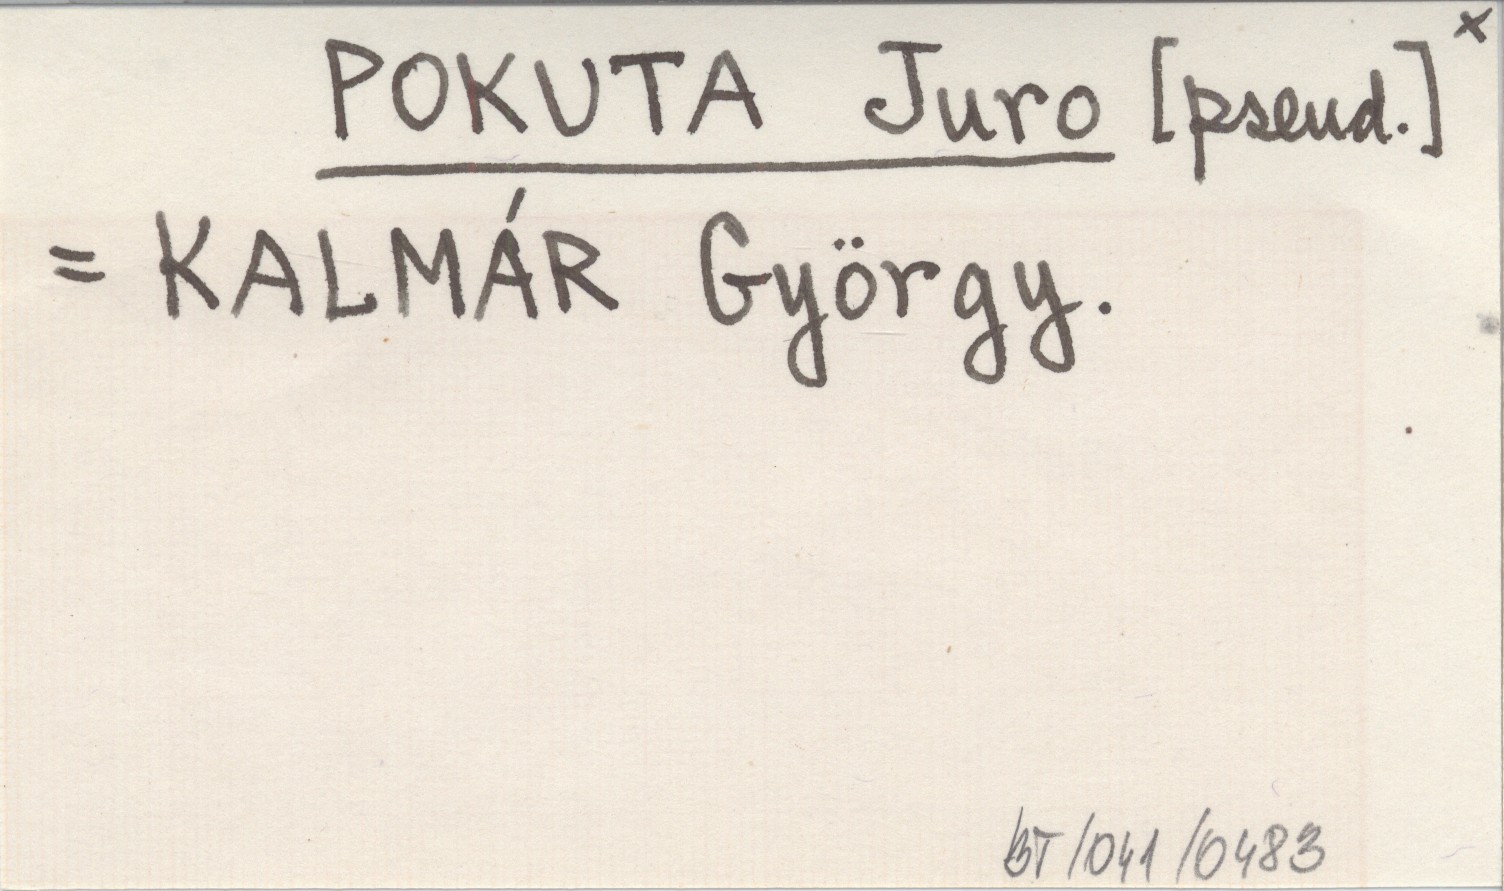 POKUTA Juro [pseud.] x
= KALMÁR György.
BT/041/0483